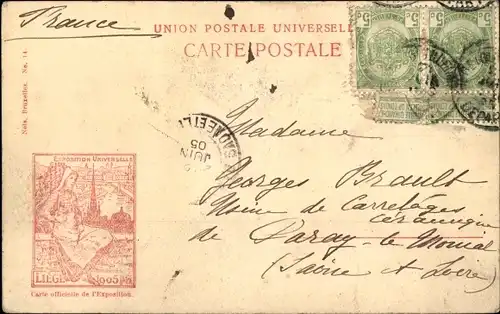 France
UNION POSTALE UNIVERSELLE
CARTE POSTALE
Nels, Bruxelles. No. 14.
JUIN
05
Madame
Georges Brault
Usine de Carrelages
céramique
de Paray-le-Monial
(Saône et Loire)
EXPOSITION UNIVERSELLE
LIÈGE 1905
Carte officielle de l'Exposition.